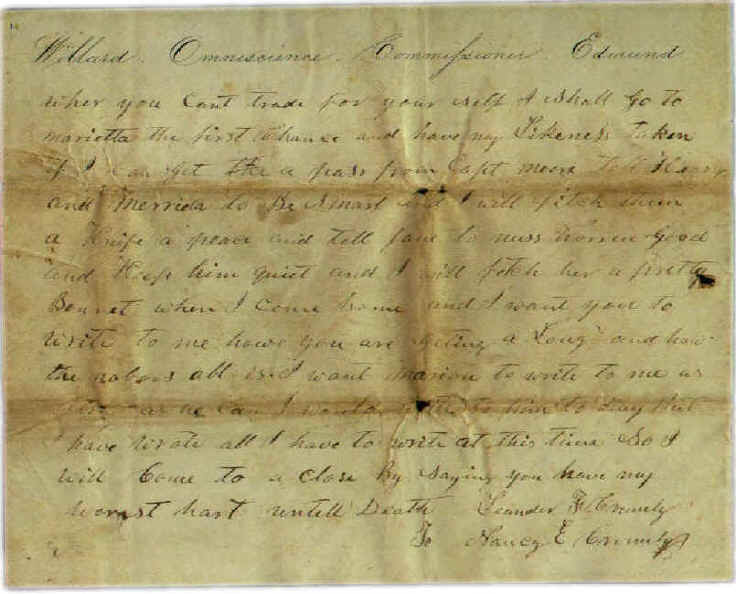 Willard. Omniscience. Commissioner. Edmund
wher you Cant trade for your self I shall Go to
marietta the first Chance and have my Likeness taken
if I can get the a pass from Capt moore Tell Henry
and Merrida to Be Smart and I will fitch them
a Knife a peace and tell Jane to nuss Warren good
and Keep him quiet and I will fetch her a pretty
Bonnet when I come home and I want you to
write to me howe you are geting a Long and how
the nabors all is I want marion to write to me as
as he can I would write to him to Day But
have wrote all I have to write at this time So I
will Come to a close By Saying you have my
hart untell Death Leander F Crumly
To Nancy E Crumly